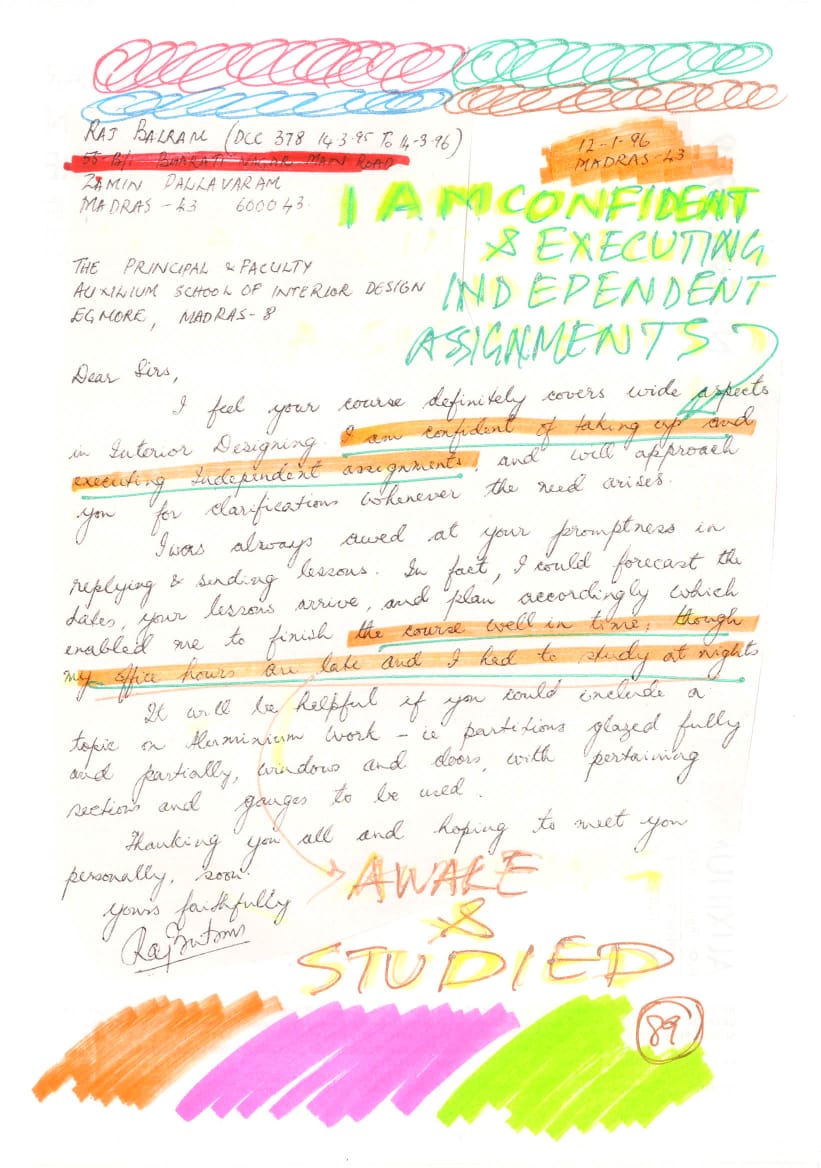 RAJ BALRAM (DCC 378 14-3-95 TO 14-3-96)
12-1-96
55-B/1 BHARATI NAGAR MAIN ROAD
MADRAS-43
ZAMIN PALLAVARAM
MADRAS-43 600043.
I AM CONFIDENT
& EXECUTING
INDEPENDENT
ASSIGNMENTS
THE PRINCIPAL & FACULTY
AUXILIUM SCHOOL OF INTERIOR DESIGN
EGMORE, MADRAS-8
Dear Sirs,
I feel your course definitely covers wide aspects
in Interior Designing. I am confident of taking up and
executing Independent assignments, and will approach
you for clarifications whenever the need arises.
I was always awed at your promptness in
replying & sending lessons. In fact, I could forecast the
dates, your lessons arrive, and plan accordingly which
enabled me to finish the course well in time, though
my office hours are late and I had to study at nights
It will be helpful if you could include a
topic on Aluminium Work - ie partitions glazed fully
and partially, windows and doors, with pertaining
sections and gauges to be used.
Thanking you all and hoping to meet you
personally, soon.
yours faithfully
AWAKE
&
STUDIED
89